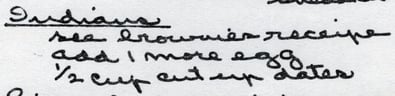 Indians
see brownies receipe
add 1 more egg
1/2 cup cut up dates